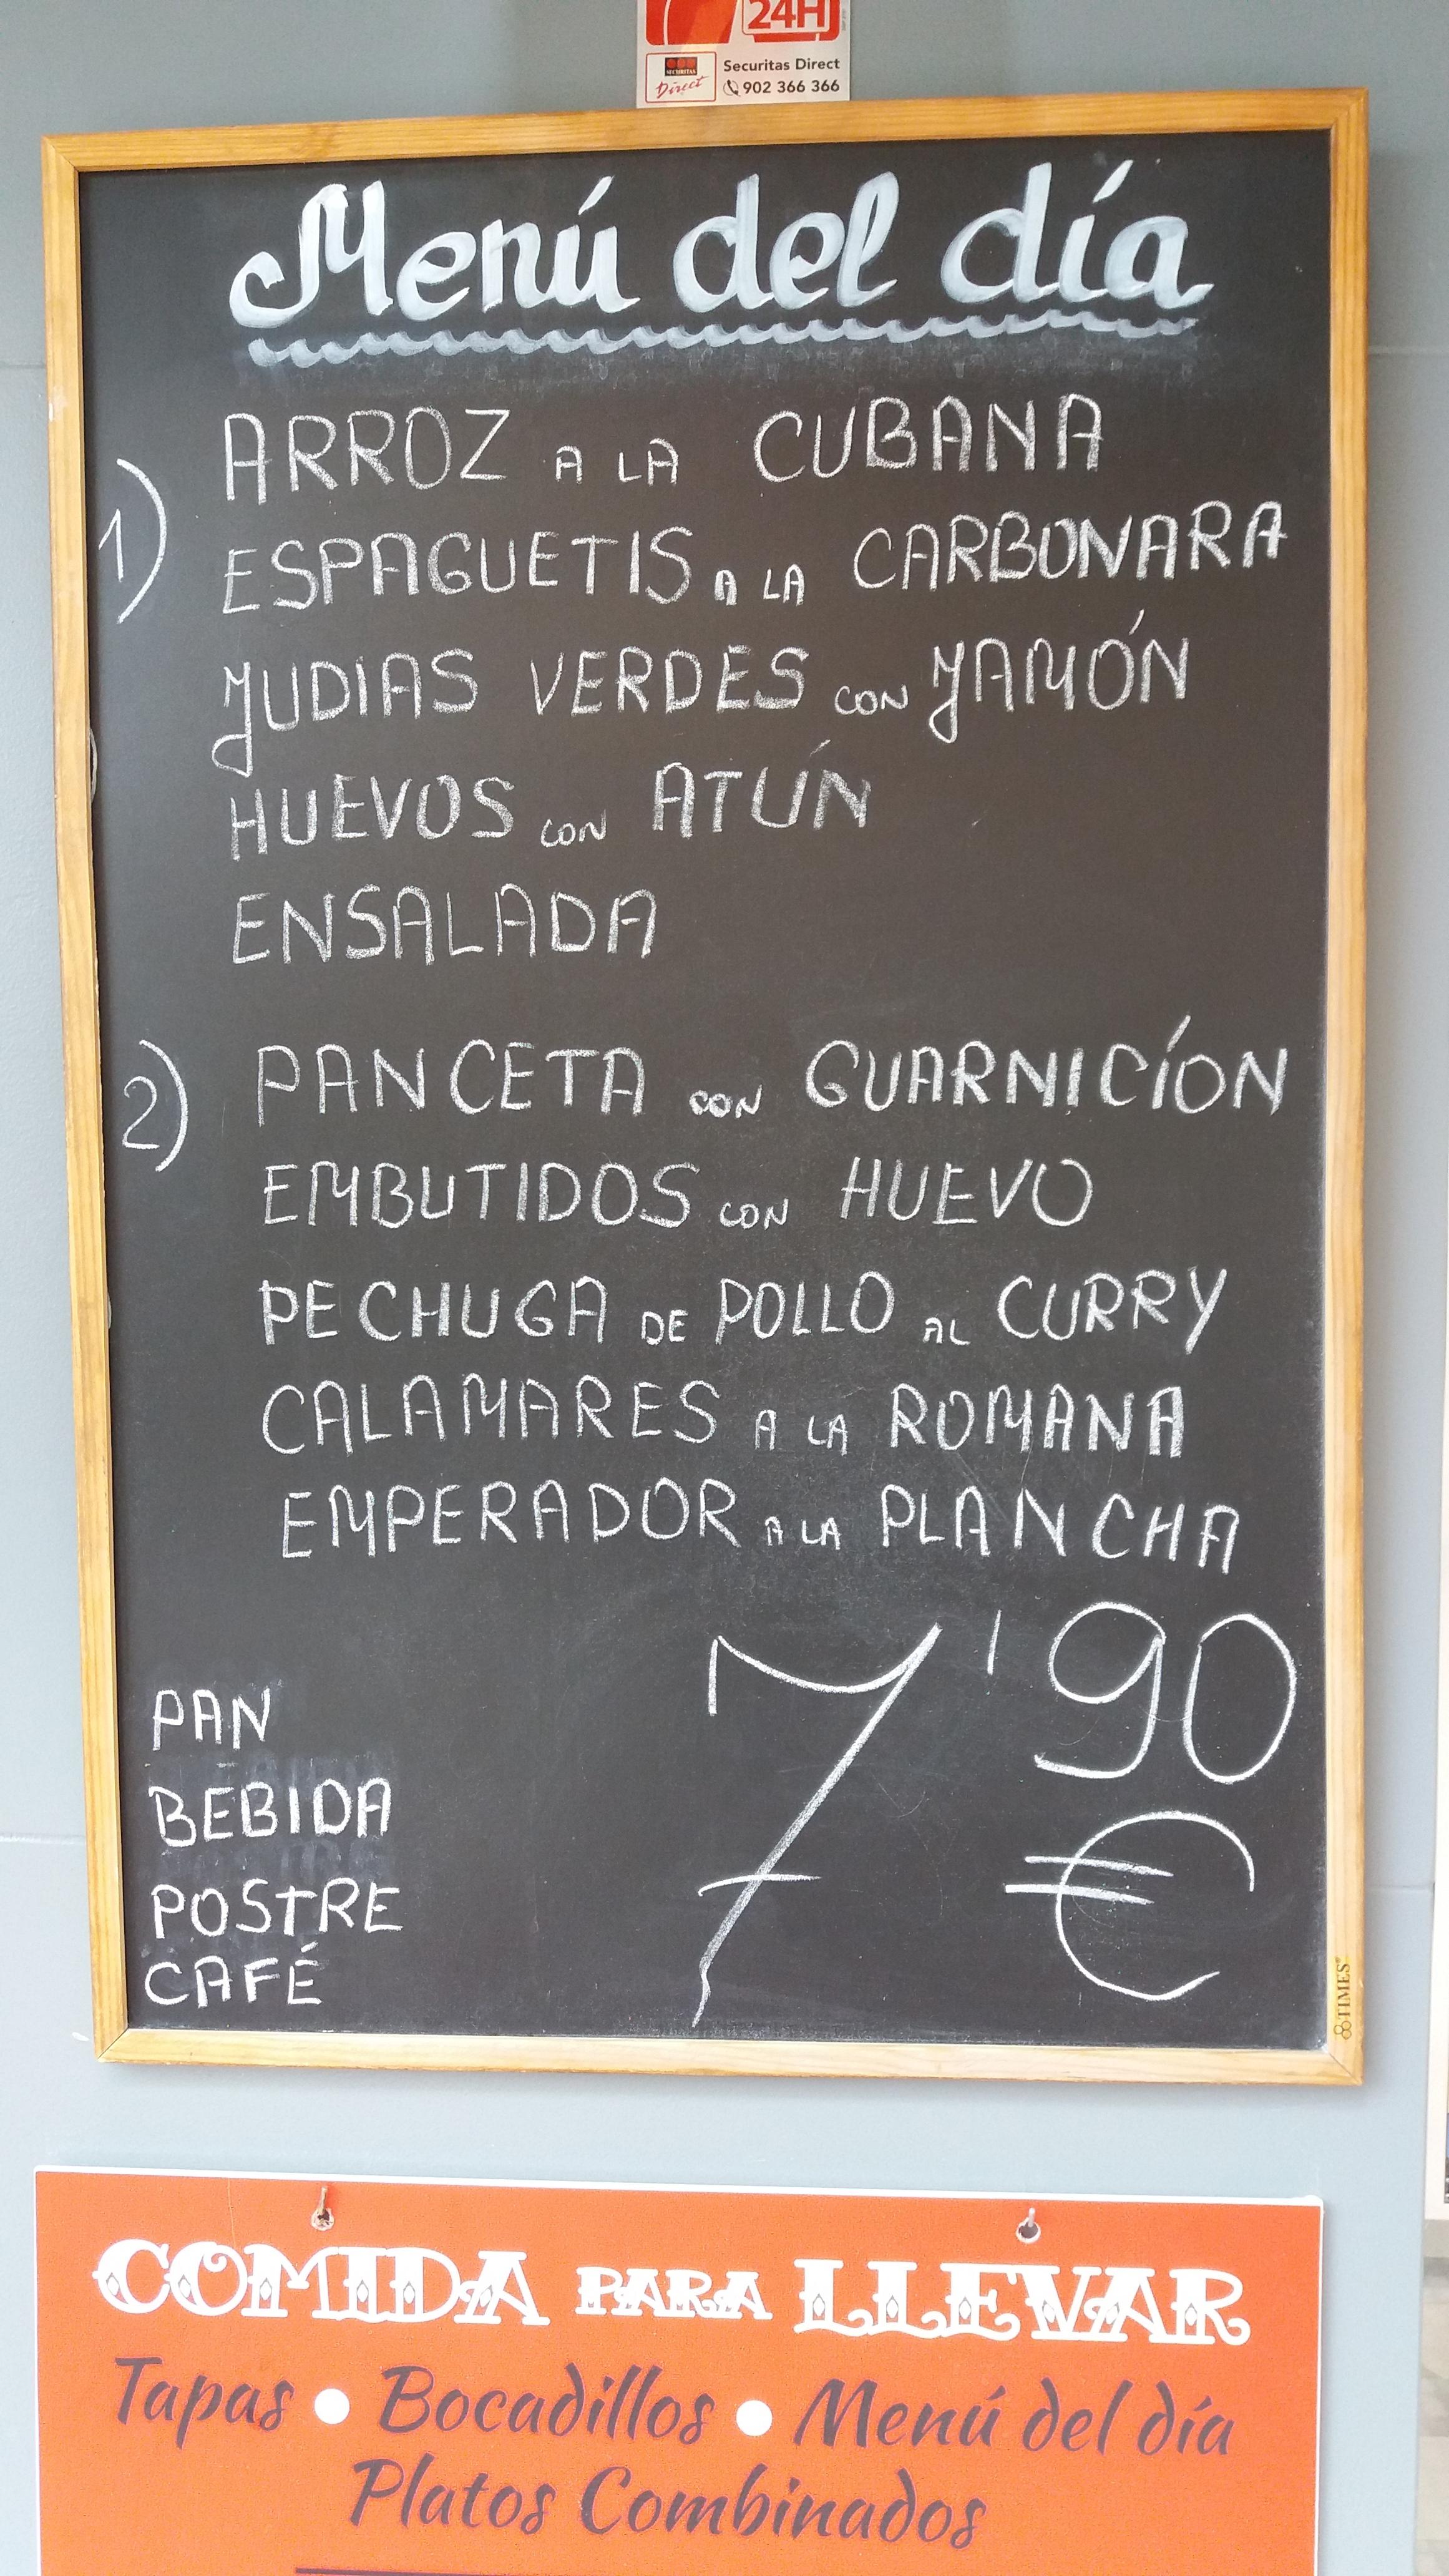 24H
SECURITAS
Direct
Securitas Direct
902 366 366
Menú del día
1)
ARROZ A LA CUBANA
ESPAGUETIS A LA CARBONARA
JUDIAS VERDES CON JAMÓN
HUEVOS CON ATÚN
ENSALADA
2)
PANCETA CON GUARNICÍON
EMBUTIDOS CON HUEVO
PECHUGA DE POLLO AL CURRY
CALAMARES A LA ROMANA
EMPERADOR A LA PLANCHA
PAN
BEBIDA
POSTRE
CAFÉ
7'90
€
TIMES
COMIDA PARA LLEVAR
Tapas • Bocadillos • Menú del día
Platos Combinados